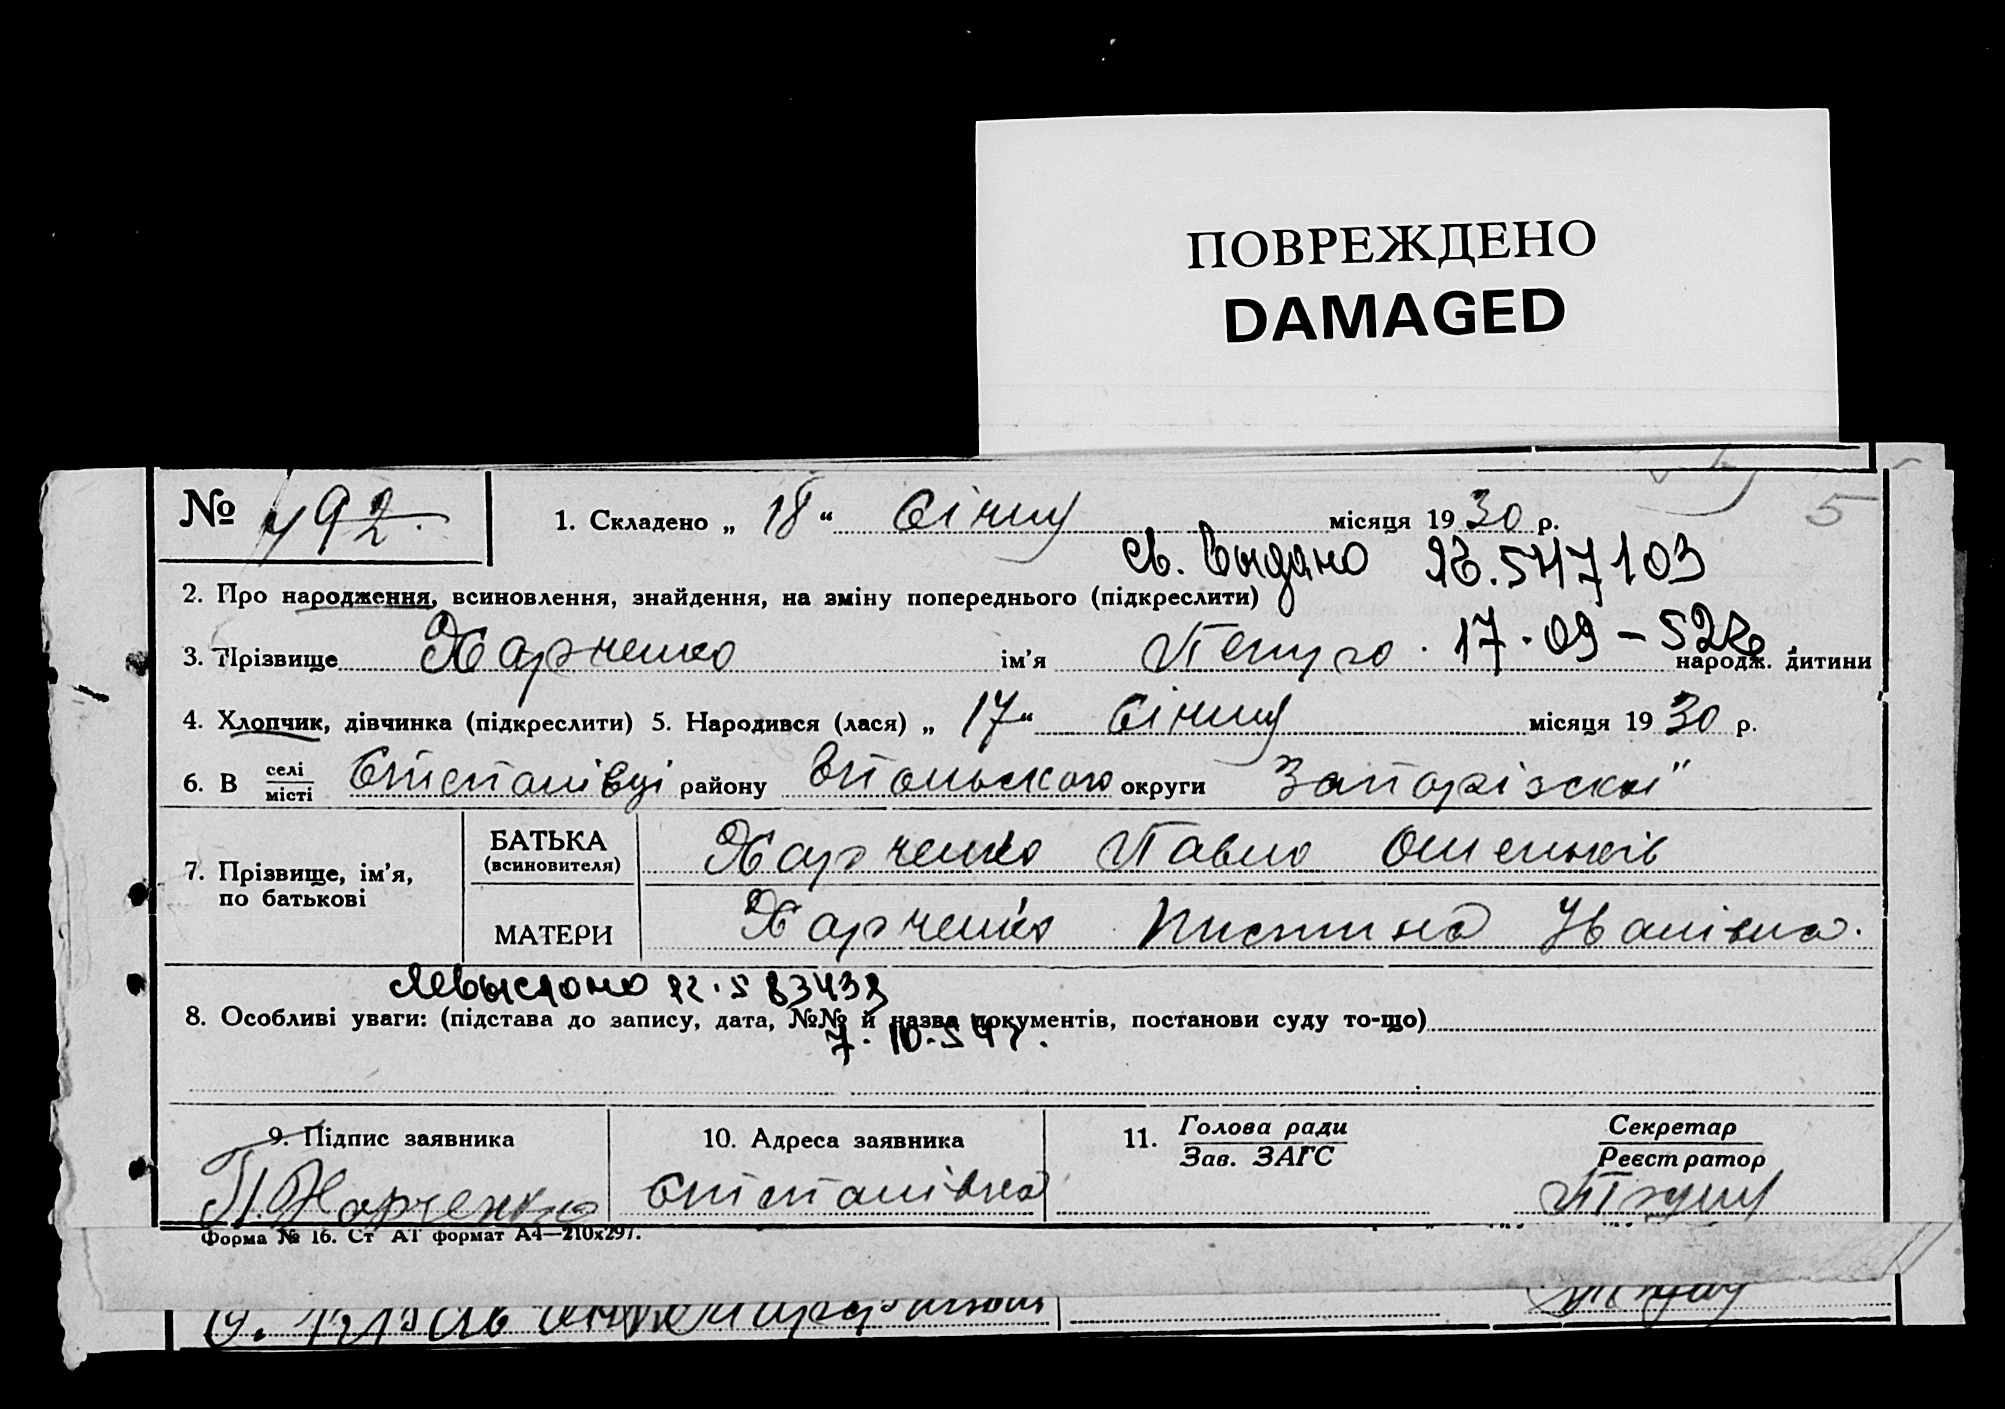 ПОВРЕЖДЕНО
DAMAGED
5
№ 492. 1. Складено „ 18 “ Січня місяця 1930 р.
св. выдано ЯБ.547103
2. Про народження, всиновлення, знайдення, на зміну попереднього (підкреслити)
17.09-52г.
3. Прізвище Харченко ім’я Петро народж. дитини
4. Хлопчик, дівчинка (підкреслити) 5. Народився (лася) „ 17 “ Січня місяця 1930 р.
6. В селі місті Степанівці району округи Запорізскої
7. Прізвище, ім’я, по батькові
БАТЬКА (всиновителя) Харченко Павло
МАТЕРИ Харченко Пистина Іванівна.
583439
8. Особливі уваги: (підстава до запису, дата, №№ й назва документів, постанови суду то-що)
7.10.54г.
9. Підпис заявника 10. Адреса заявника 11. Голова ради Зав. ЗАГС Секретар Реєстратор
П. Харченко Степанівка
Форма № 16. Ст АТ формат А4—210х297.